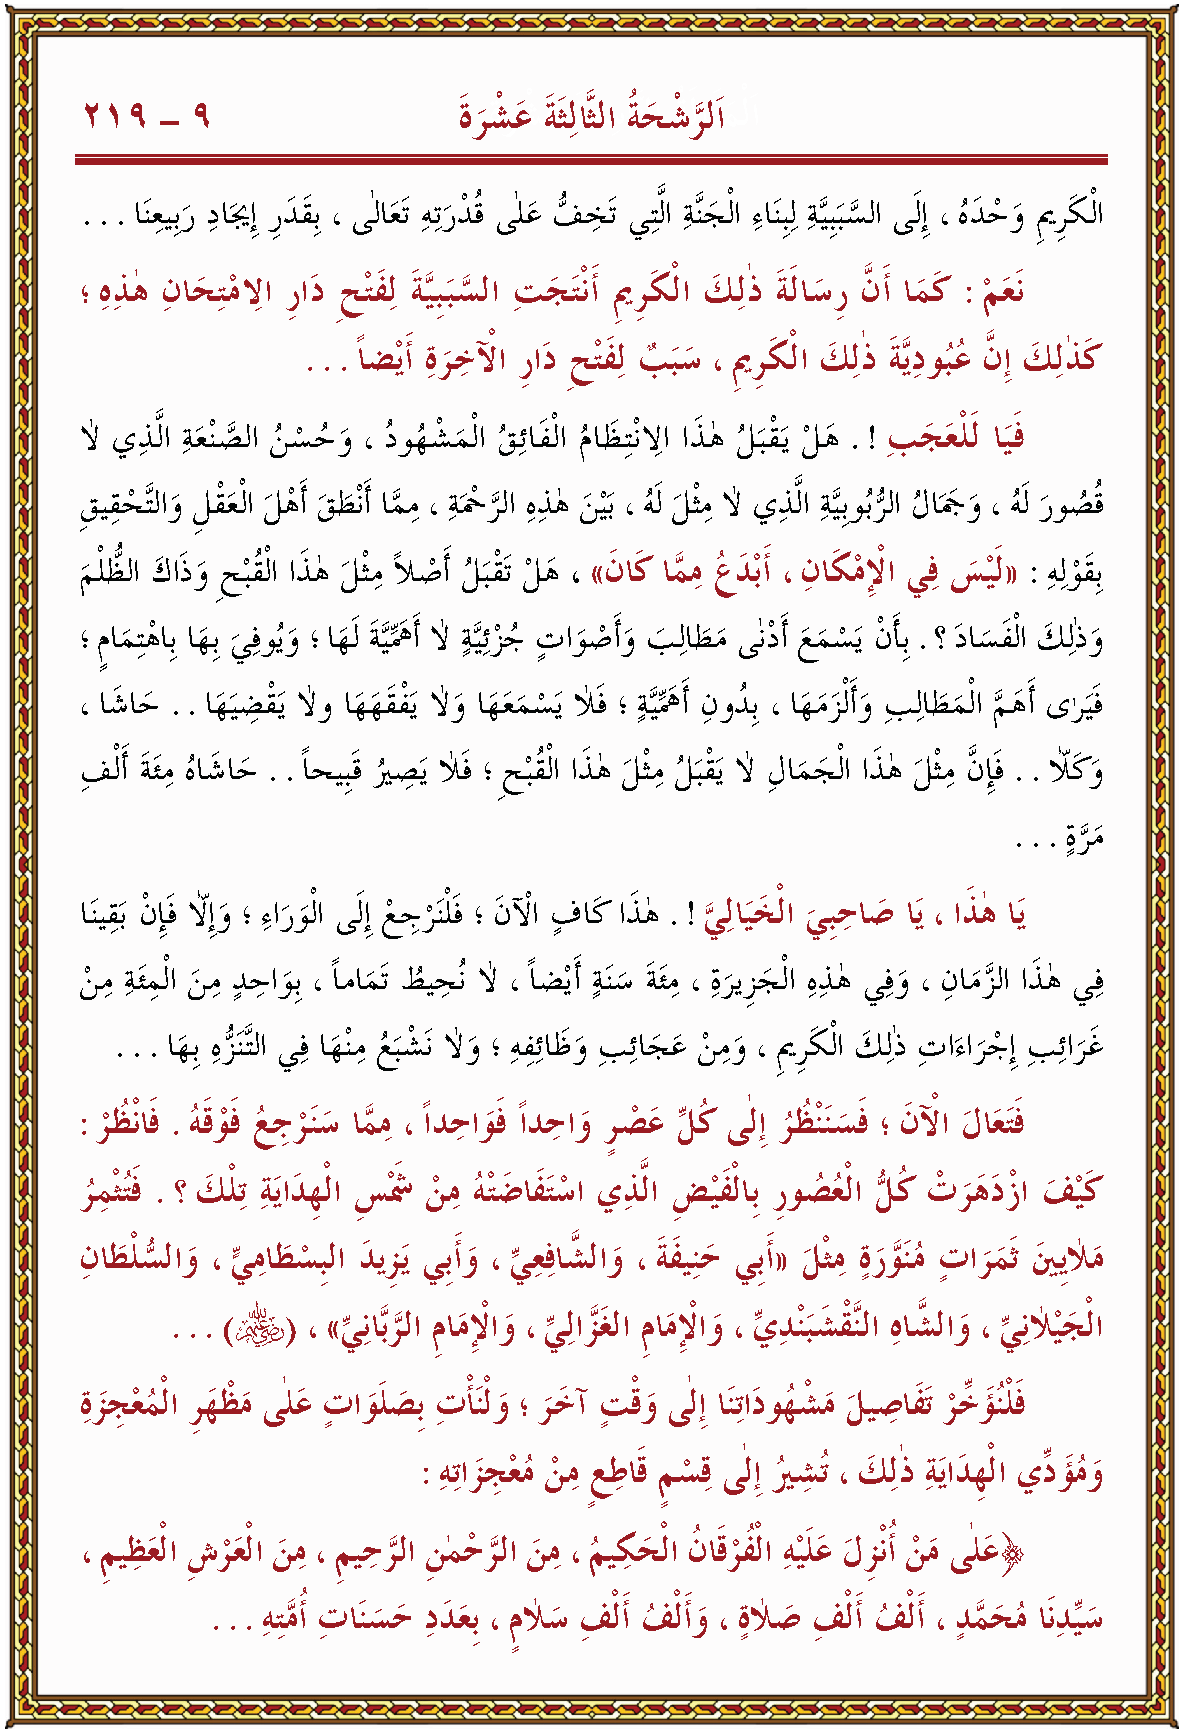 اَلرَّشْحَةُ الثَّالِثَةَ عَشْرَةَ ٩ – ٢١٩
الْكَرِيمِ وَحْدَهُ ، إِلَى السَّبَبِيَّةِ لِبِنَاءِ الْجَنَّةِ الَّتِي تَخِفُّ عَلٰى قُدْرَتِهِ تَعَالٰى ، بِقَدَرِ إِيجَادِ رَبِيعِنَا . . .
نَعَمْ : كَمَا أَنَّ رِسَالَةَ ذٰلِكَ الْكَرِيمِ أَنْتَجَتِ السَّبَبِيَّةَ لِفَتْحِ دَارِ الِامْتِحَانِ هٰذِهِ ؛
كَذٰلِكَ إِنَّ عُبُودِيَّةَ ذٰلِكَ الْكَرِيمِ ، سَبَبٌ لِفَتْحِ دَارِ الْآخِرَةِ أَيْضاً . . .
فَيَا لَلْعَجَبِ ! . هَلْ يَقْبَلُ هٰذَا الِانْتِظَامُ الْفَائِقُ الْمَشْهُودُ ، وَحُسْنُ الصَّنْعَةِ الَّذِي لَا
قُصُورَ لَهُ ، وَجَمَالُ الرُّبُوبِيَّةِ الَّذِي لَا مِثْلَ لَهُ ، بَيْنَ هٰذِهِ الرَّحْمَةِ ، مَّا أَنْطَقَ أَهْلَ الْعَقْلِ وَالتَّحْقِيقِ
بِقَوْلِهِ : «لَيْسَ فِي الْإِمْكَانِ ، أَبْدَعُ مِمَّا كَانَ» ، هَلْ تَقْبَلُ أَصْلاً مِثْلَ هٰذَا الْقُبْحِ وَذَاكَ الظُّلْمَ
وَذٰلِكَ الْفَسَادَ ؟ . بِأَنْ يَسْمَعَ أَدْنٰى مَطَالِبَ وَأَصْوَاتٍ جُزْئِيَّةٍ لَا أَهَمِّيَّةَ لَهَا ؛ وَيُوفِيَ بِهَا بِاهْتِمَامٍ ؛
فَيَرٰى أَهَمَّ الْمَطَالِبِ وَأَلْزَمَهَا ، بِدُونِ أَهَمِّيَّةٍ ؛ فَلَا يَسْمَعَهَا وَلَا يَفْقَهَهَا ولَا يَقْضِيَهَا . . حَاشَا ،
وَكَلَّا . . فَإِنَّ مِثْلَ هٰذَا الْجَمَالِ لَا يَقْبَلُ مِثْلَ هٰذَا الْقُبْحِ ؛ فَلَا يَصِيرُ قَبِيحاً . . حَاشَاهُ مِئَةَ أَلْفِ
مَرَّةٍ . . .
يَا هٰذَا ، يَا صَاحِبِيَ الْخَيَالِيَّ ! . هٰذَا كَافٍ الْآنَ ؛ فَلْنَرْجِعْ إِلَى الْوَرَاءِ ؛ وَإِلَّا فَإِنْ بَقِينَا
فِي هٰذَا الزَّمَانِ ، وَفِي هٰذِهِ الْجَزِيرَةِ ، مِئَةَ سَنَةٍ أَيْضاً ، لَا نُحِيطُ تَمَاماً ، بِوَاحِدٍ مِنَ الْمِئَةِ مِنْ
غَرَائِبِ إِجْرَاءَاتِ ذٰلِكَ الْكَرِيمِ ، وَمِنْ عَجَائِبِ وَظَائِفِهِ ؛ وَلَا نَشْبَعُ مِنْهَا فِي التَّنَزُّهِ بِهَا . . .
فَتَعَالَ الْآنَ ؛ فَسَنَنْظُرُ إِلٰى كُلِّ عَصْرٍ وَاحِداً فَوَاحِداً ، مِمَّا سَنَرْجِعُ فَوْقَهُ . فَانْظُرْ :
كَيْفَ ازْدَهَرَتْ كُلُّ الْعُصُورِ بِالْفَيْضِ الَّذِي اسْتَفَاضَتْهُ مِنْ شَمْسِ الْهِدَايَةِ تِلْكَ ؟ . فَتُثْمِرُ
مَلَايِينَ ثَمَرَاتٍ مُنَوَّرَةٍ مِثْلَ «أَبِي حَنِيفَةَ ، وَالشَّافِعِيِّ ، وَأَبِي يَزِيدَ الْبِسْطَامِيِّ ، وَالسُّلْطَانِ
الْجَيْلَانِيِّ ، وَالشَّاهِ النَّقْشَبَنْدِيِّ ، وَالْإِمَامِ الْغَزَّالِيِّ ، وَالْإِمَامِ الرَّبَّانِيِّ» ، (ﷺ) . . .
فَلْنُؤَخِّرْ تَفَاصِيلَ مَشْهُودَاتِنَا إِلٰى وَقْتٍ آخَرَ ؛ وَلْنَأْتِ بِصَلَوَاتٍ عَلٰى مَظْهَرِ الْمُعْجِزَةِ
وَمُؤَدِّي الْهِدَايَةِ ذٰلِكَ ، تُشِيرُ إِلٰى قِسْمٍ قَاطِعٍ مِنْ مُعْجِزَاتِهِ :
﴿عَلٰى مَنْ أُنْزِلَ عَلَيْهِ الْفُرْقَانُ الْحَكِيمُ ، مِنَ الرَّحْمٰنِ الرَّحِيمِ ، مِنَ الْعَرْشِ الْعَظِيمِ ،
سَيِّدِنَا مُحَمَّدٍ ، أَلْفُ أَلْفِ صَلَاةٍ ، وَأَلْفُ أَلْفِ سَلَامٍ ، بِعَدَدِ حَسَنَاتِ أُمَّتِهِ . . .